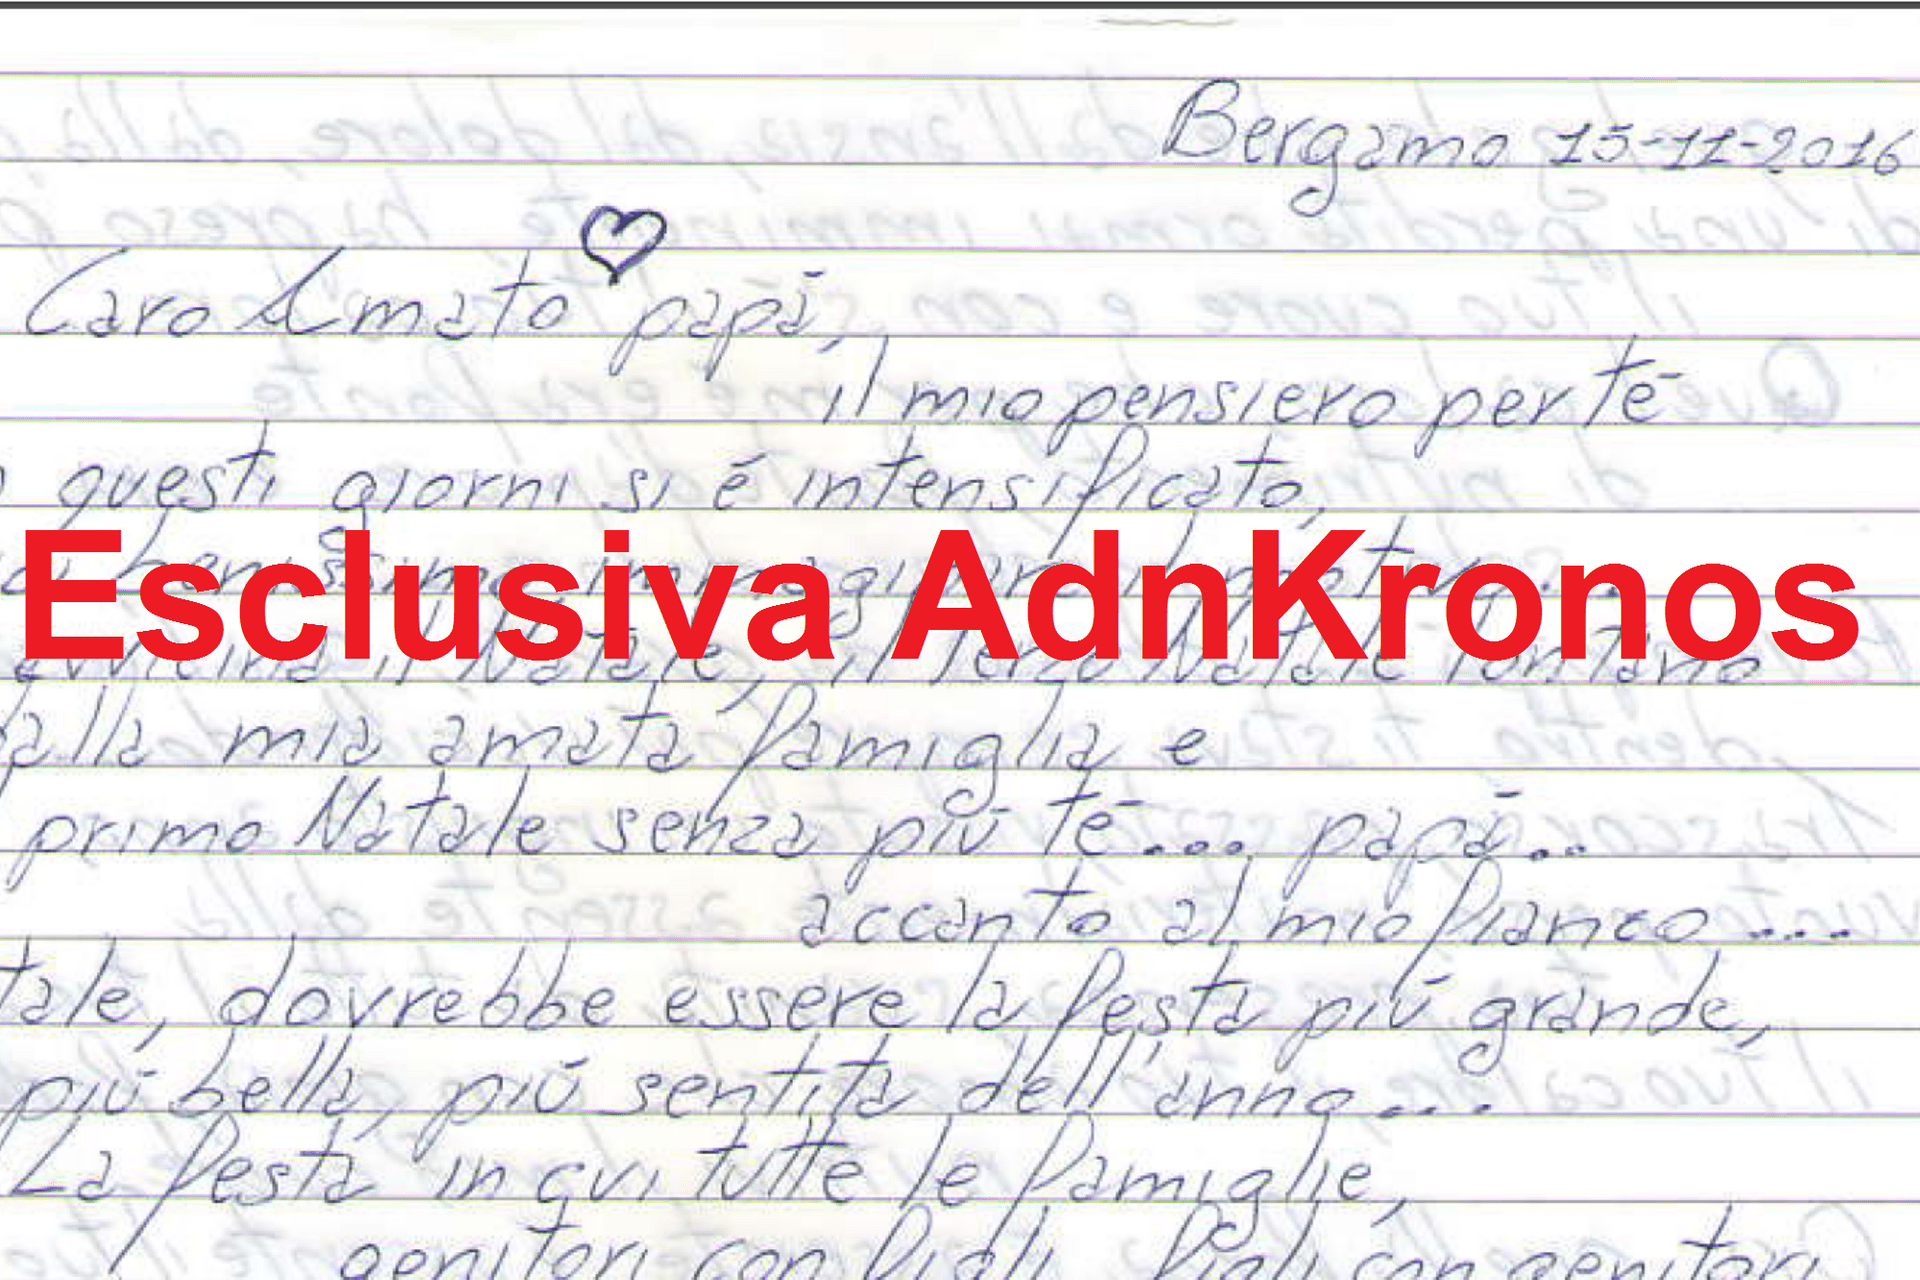 Bergamo 15-11-2016
Caro Amato papà,
il mio pensiero per tè
questi giorni si è intensificato,
benissimo immaginare il motivo...
Esclusiva AdnKronos
avvicina il Natale, il terzo Natale lontano
dalla mia amata famiglia e
primo Natale senza più tè.... papà..
accanto al mio fianco....
tale, dovrebbe essere la festa più grande,
più bella, più sentita dell'anno...
La festa in qui tutte le famiglie,
genitori con figli, figli con genitori